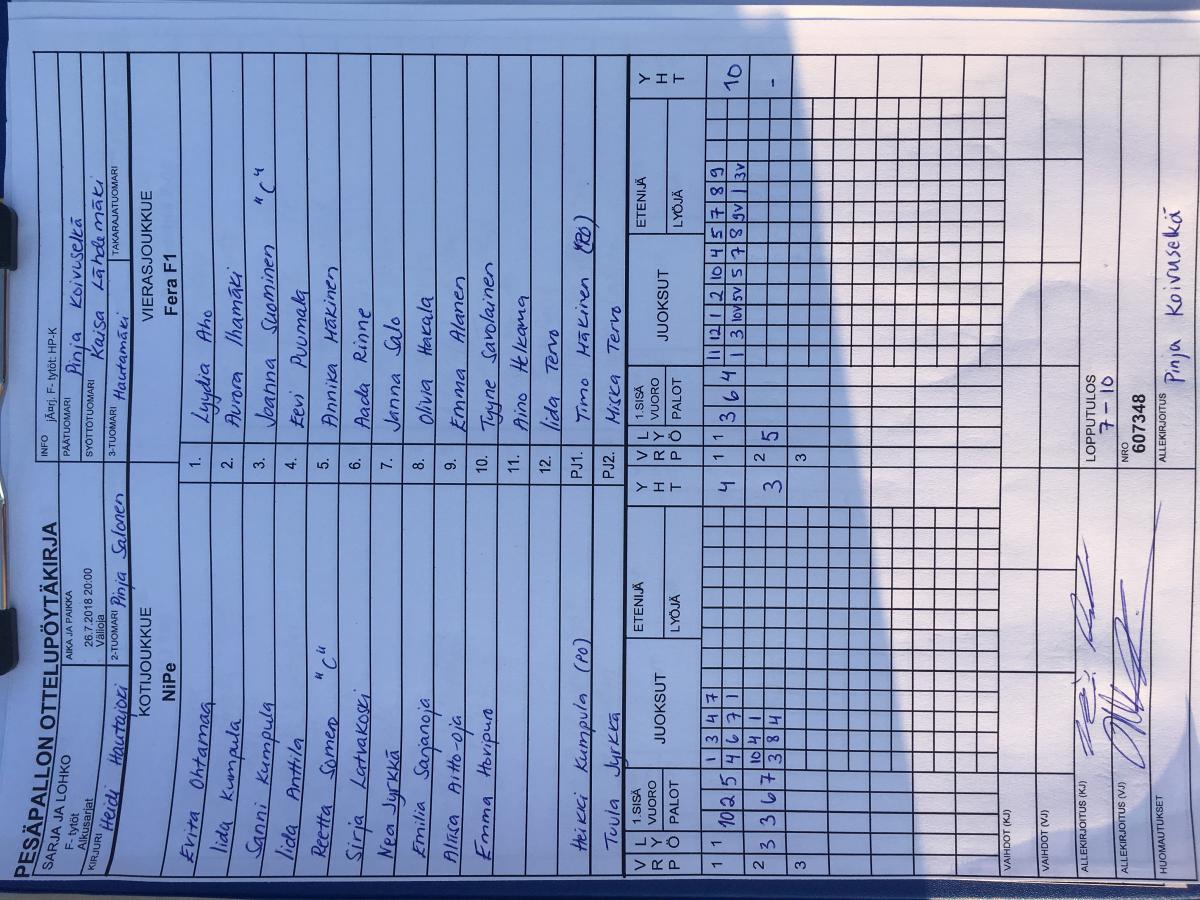 PESÄPALLON OTTELUPÖYTÄKIRJA
SARJA JA LOHKO
F- tytöt
Alkusarjat
AIKA JA PAIKKA
26.7.2018 20:00
Välioja
INFO jÄ¤rj. F- tytöt: HP-K
PÄÄTUOMARI Pinja Koivuselkä
SYÖTTÖTUOMARI Kaisa Lähdemäki
KIRJURI Heidi Hautajoki
2-TUOMARI Pinja Salonen
3-TUOMARI Hautamäki
TAKARAJATUOMARI
KOTIJOUKKUE
NiPe
VIERASJOUKKUE
Fera F1
Evita Ohtamaa 1. Lyydia Aho
Iida Kumpula 2. Aurora Ihamäki
Sanni Kumpula 3. Joanna Suominen "C"
Iida Anttila 4. Eevi Puumala
Reetta Somero "C" 5. Annika Mäkinen
Sirja Latvakoski 6. Aada Rinne
Nea Jyrkkä 7. Janna Salo
Emilia Sajanoja 8. Olivia Hakala
Alisa Aitto-oja 9. Emma Alanen
Emma Horipuro 10. Tyyne Savolainen
11. Aino Helkama
12. Iida Tervo
Heikki Kumpula (PO) PJ1. Timo Mäkinen
Tuula Jyrkkä PJ2. Miska Tervo
V R P L Y Ö 1.SISÄ VUORO PALOT JUOKSUT ETENIJÄ LYÖJÄ Y H T V R P L Y Ö 1.SISÄ VUORO PALOT JUOKSUT ETENIJÄ LYÖJÄ Y H T
1 1 10 2 5 1 3 4 7 4 1 1 3 6 4 11 12 1 2 10 4 5 7 8 9 10
4 6 7 1 1 3 10V 5V 5 7 8 9V 1 3V
2 3 3 6 7 10 4 1 3 2 5 -
3 8 4
3 3
VAIHDOT (KJ)
VAIHDOT (VJ)
ALLEKIRJOITUS (KJ)
LOPPUTULOS
7-10
ALLEKIRJOITUS (VJ)
NRO
607348
HUOMAUTUKSET
ALLEKIRJOITUS Pinja Koivuselkä